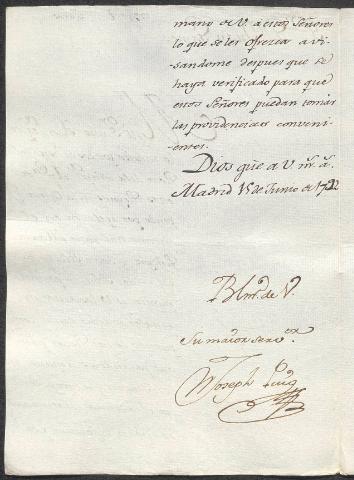 mano de V. a estos Señores
lo que se les ofrezca avi-
sandome despues que se
haya verificado para que
estos Señores puedan tomar
las providencias conveni-
entes.
Dios gūe a V. ms. as.
Madrid 15 de Junio de 1722
Blms. de V.
Su maior servor.
Joseph Puig